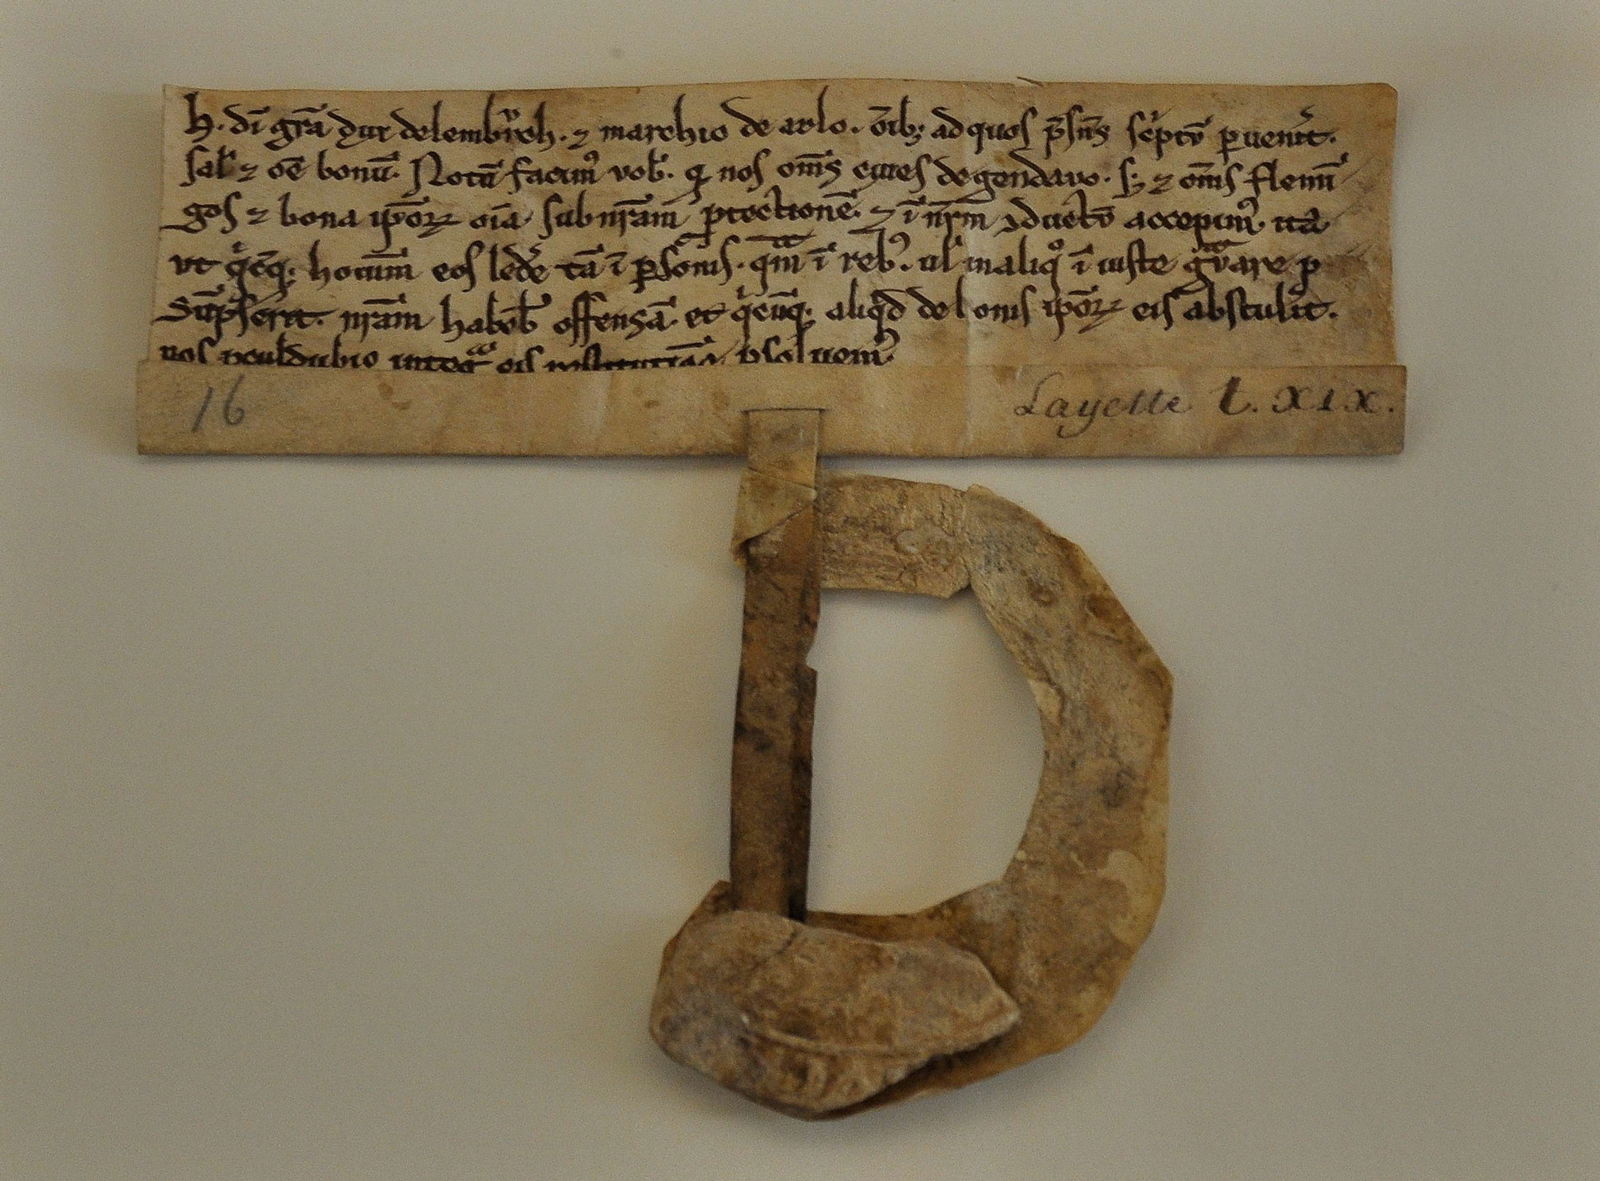 h. dī gr̄a dux de lemburch. ⁊ marchio de arlo. oīb; ad quos p̄sn̄s sc̉ptū puenit̉.
sal̄ ⁊ oē bonū. Notū facim̉ vob̉. q nos om̄s ciues de gendauo. s; ⁊ om̄s flemī
gos ⁊ bona ip̄oꝝ oīa sub nr̄am ptectionē. ⁊ ī nr̄m ɔductū accepim̉. ita
vt q̉cq; hominū eos led'e tā ī psonis. qm̄ ī reb̉. ul̄ in aliq̊ ī iuste gͣuare p
sūpserit. nr̄am habeb̄ offensā. et q̉cūq; aliq̉d de bonis ip̄oꝝ eis abstulit̉.
nos peul dubio integͣ eis psoluem̉
16 Layette L. XIX.